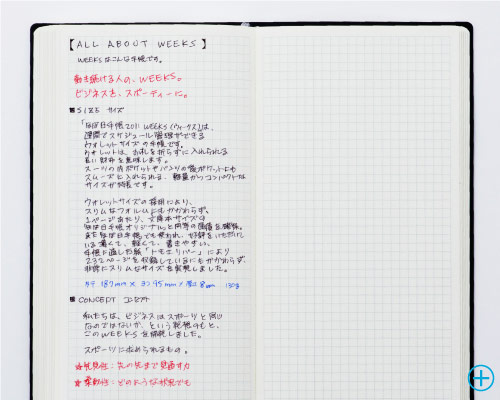 【ALL ABOUT WEEKS】
WEEKSはこんな手帳です。
動き続ける人の、WEEKS。
ビジネスを、スポーティーに。
■SIZE サイズ
「ほぼ日手帳2011 WEEKS(ウィークス)」は、
週間でスケジュール管理ができる
ウォレットサイズの手帳です。
ウォレットは、お札を折らずに入れられる
長い財布を意味します。
スーツの内ポケットやパンツの後ポケットにも
スムーズに入れられる、軽量かつコンパクトな
サイズが特長です。
ウォレットサイズの採用により、
スリムなフォルムにもかかわらず、
1ページあたり、文庫本サイズの
ほぼ日手帳オリジナルと同等の面積を確保。
またほぼ日手帳でも使われ、好評をいただいて
いる薄くて、軽くて、書きやすい、
手帳に適した紙「トモエリバー」により
232ページを収録しているにもかかわらず、
非常にスリムなサイズを実現しました。
タテ 187mm × ヨコ 95mm × 厚さ 8mm 130g
■CONCEPT コンセプト
私たちは、ビジネスはスポーツと同じ
なのではないか、という発想のもと、
このWEEKSを開発しました。
スポーツに求められるもの。
☆先見性:先の先まで見通す力
☆柔軟性:どのような状況でも